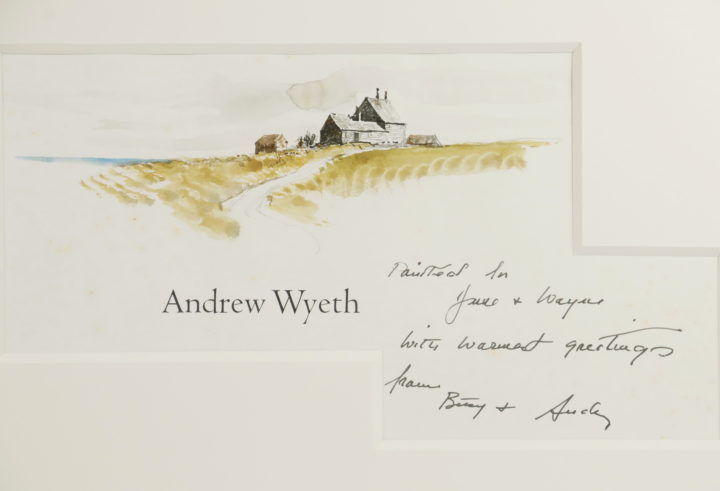 Andrew Wyeth
Painted for
Jane + Wayne
with warmest greetings
from
Betsy + Andy